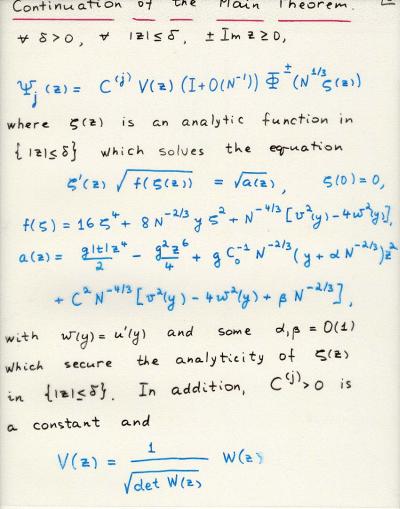 Continuation of the Main Theorem.
∀ δ>0, ∀ |z|≤δ, ± Im z ≥ 0,
Ψ_j(z) = C^(j) V(z) (I+O(N^-1)) Φ^± (N^1/3 ζ(z))
where ζ(z) is an analytic function in
{|z|≤δ} which solves the equation
ζ'(z) √f(ζ(z)) = √a(z), ζ(0)=0,
f(ζ) = 16 ζ^4 + 8 N^-2/3 y ζ^2 + N^-4/3 [v^2(y) - 4w^2(y)],
a(z) = g|t|z^4/2 - g^2z^6/4 + g C_0^-1 N^-2/3 (y + α N^-2/3) z^2
+ C^2 N^-4/3 [v^2(y) - 4w^2(y) + β N^-2/3],
with w(y) = u'(y) and some α,β = O(1)
which secure the analyticity of ζ(z)
in {|z|≤δ}. In addition, C^(j)>0 is
a constant and
V(z) = 1/√det W(z) W(z)